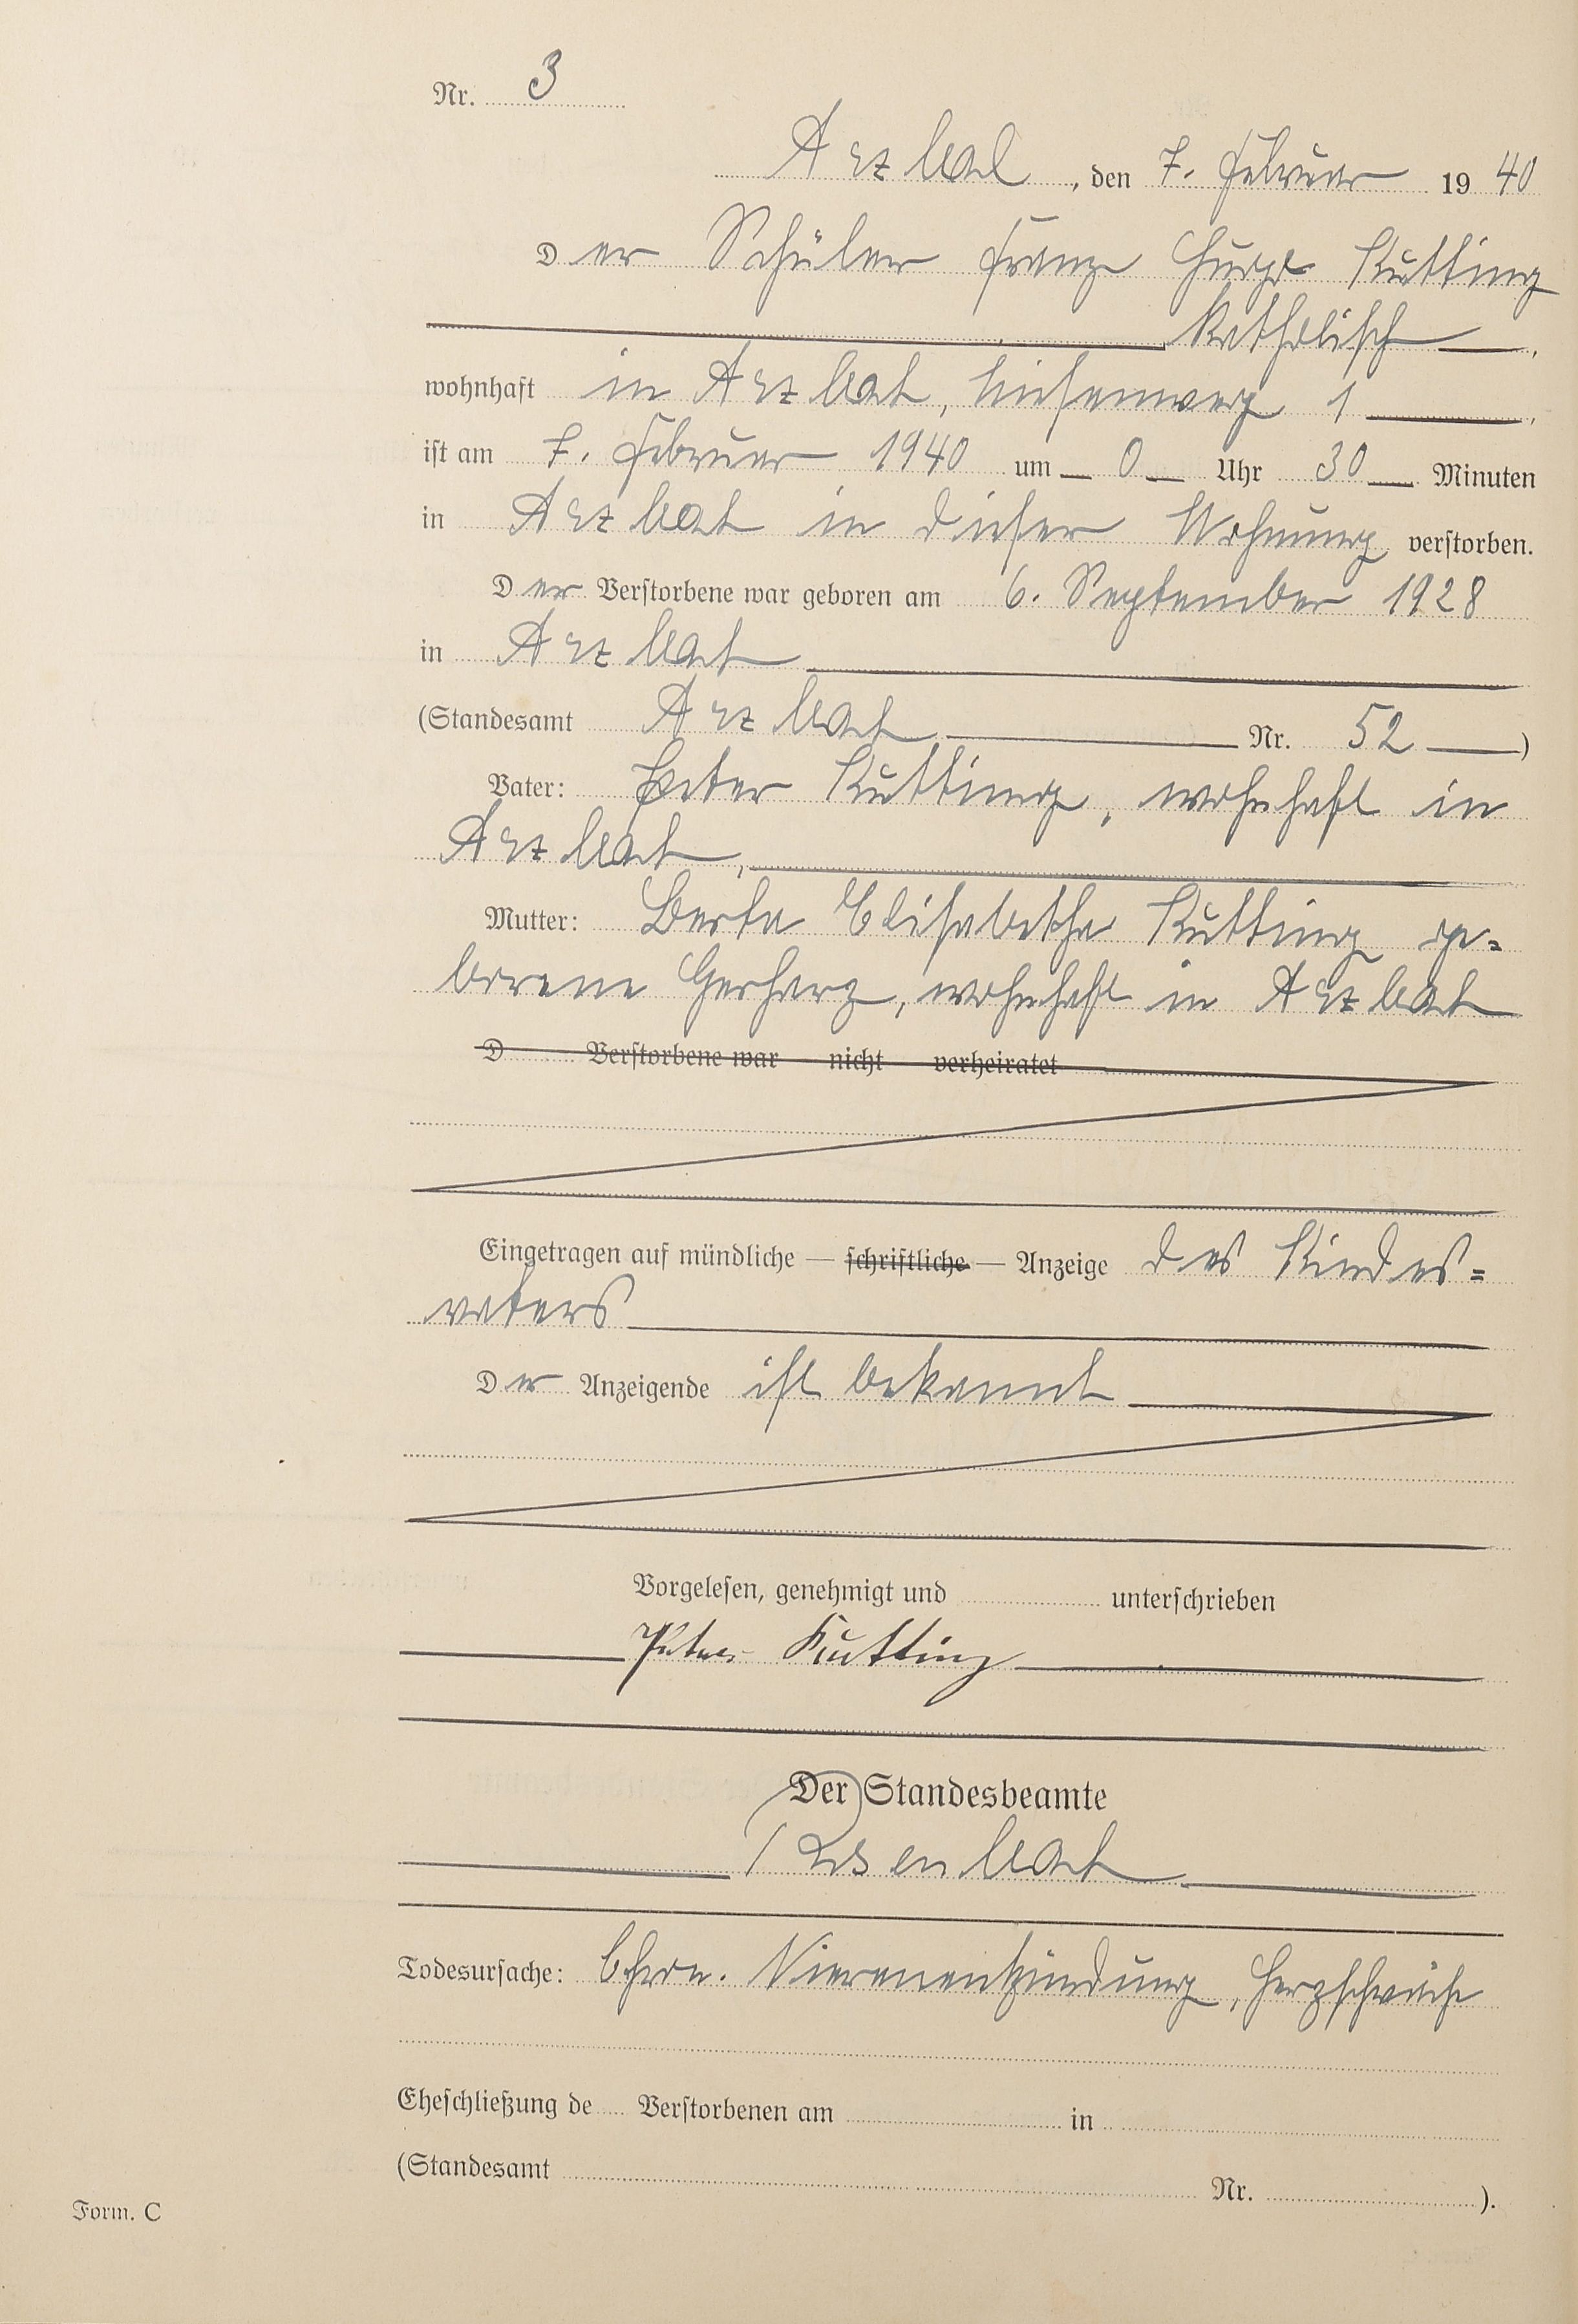 Nr. 3
Arzbach, den 7. Februar 1940
Der Schüler Franz Hugo Kutting
katholisch,
wohnhaft in Arzbach, 1,
ist am 7. Februar 1940 um 0 Uhr 30 Minuten
in Arzbach in dieser Wohnung verstorben.
Der Verstorbene war geboren am 6. September 1928
in Arzbach
(Standesamt Arzbach Nr. 52)
Vater: Peter Kutting, wohnhaft in
Arzbach,
Mutter: Berta Elisabetha Kutting ge=
borene Gerharz, wohnhaft in Arzbach
D Verstorbene war nicht verheiratet
Eingetragen auf mündliche — schriftliche — Anzeige des Kindes=
vaters
Der Anzeigende ist bekannt
Vorgelesen, genehmigt und unterschrieben
Peter Kutting
Der Standesbeamte
Todesursache: Chron. Nierenentzündung, Herzschwäche
Eheschließung de Verstorbenen am in
(Standesamt Nr. ).
Form. C